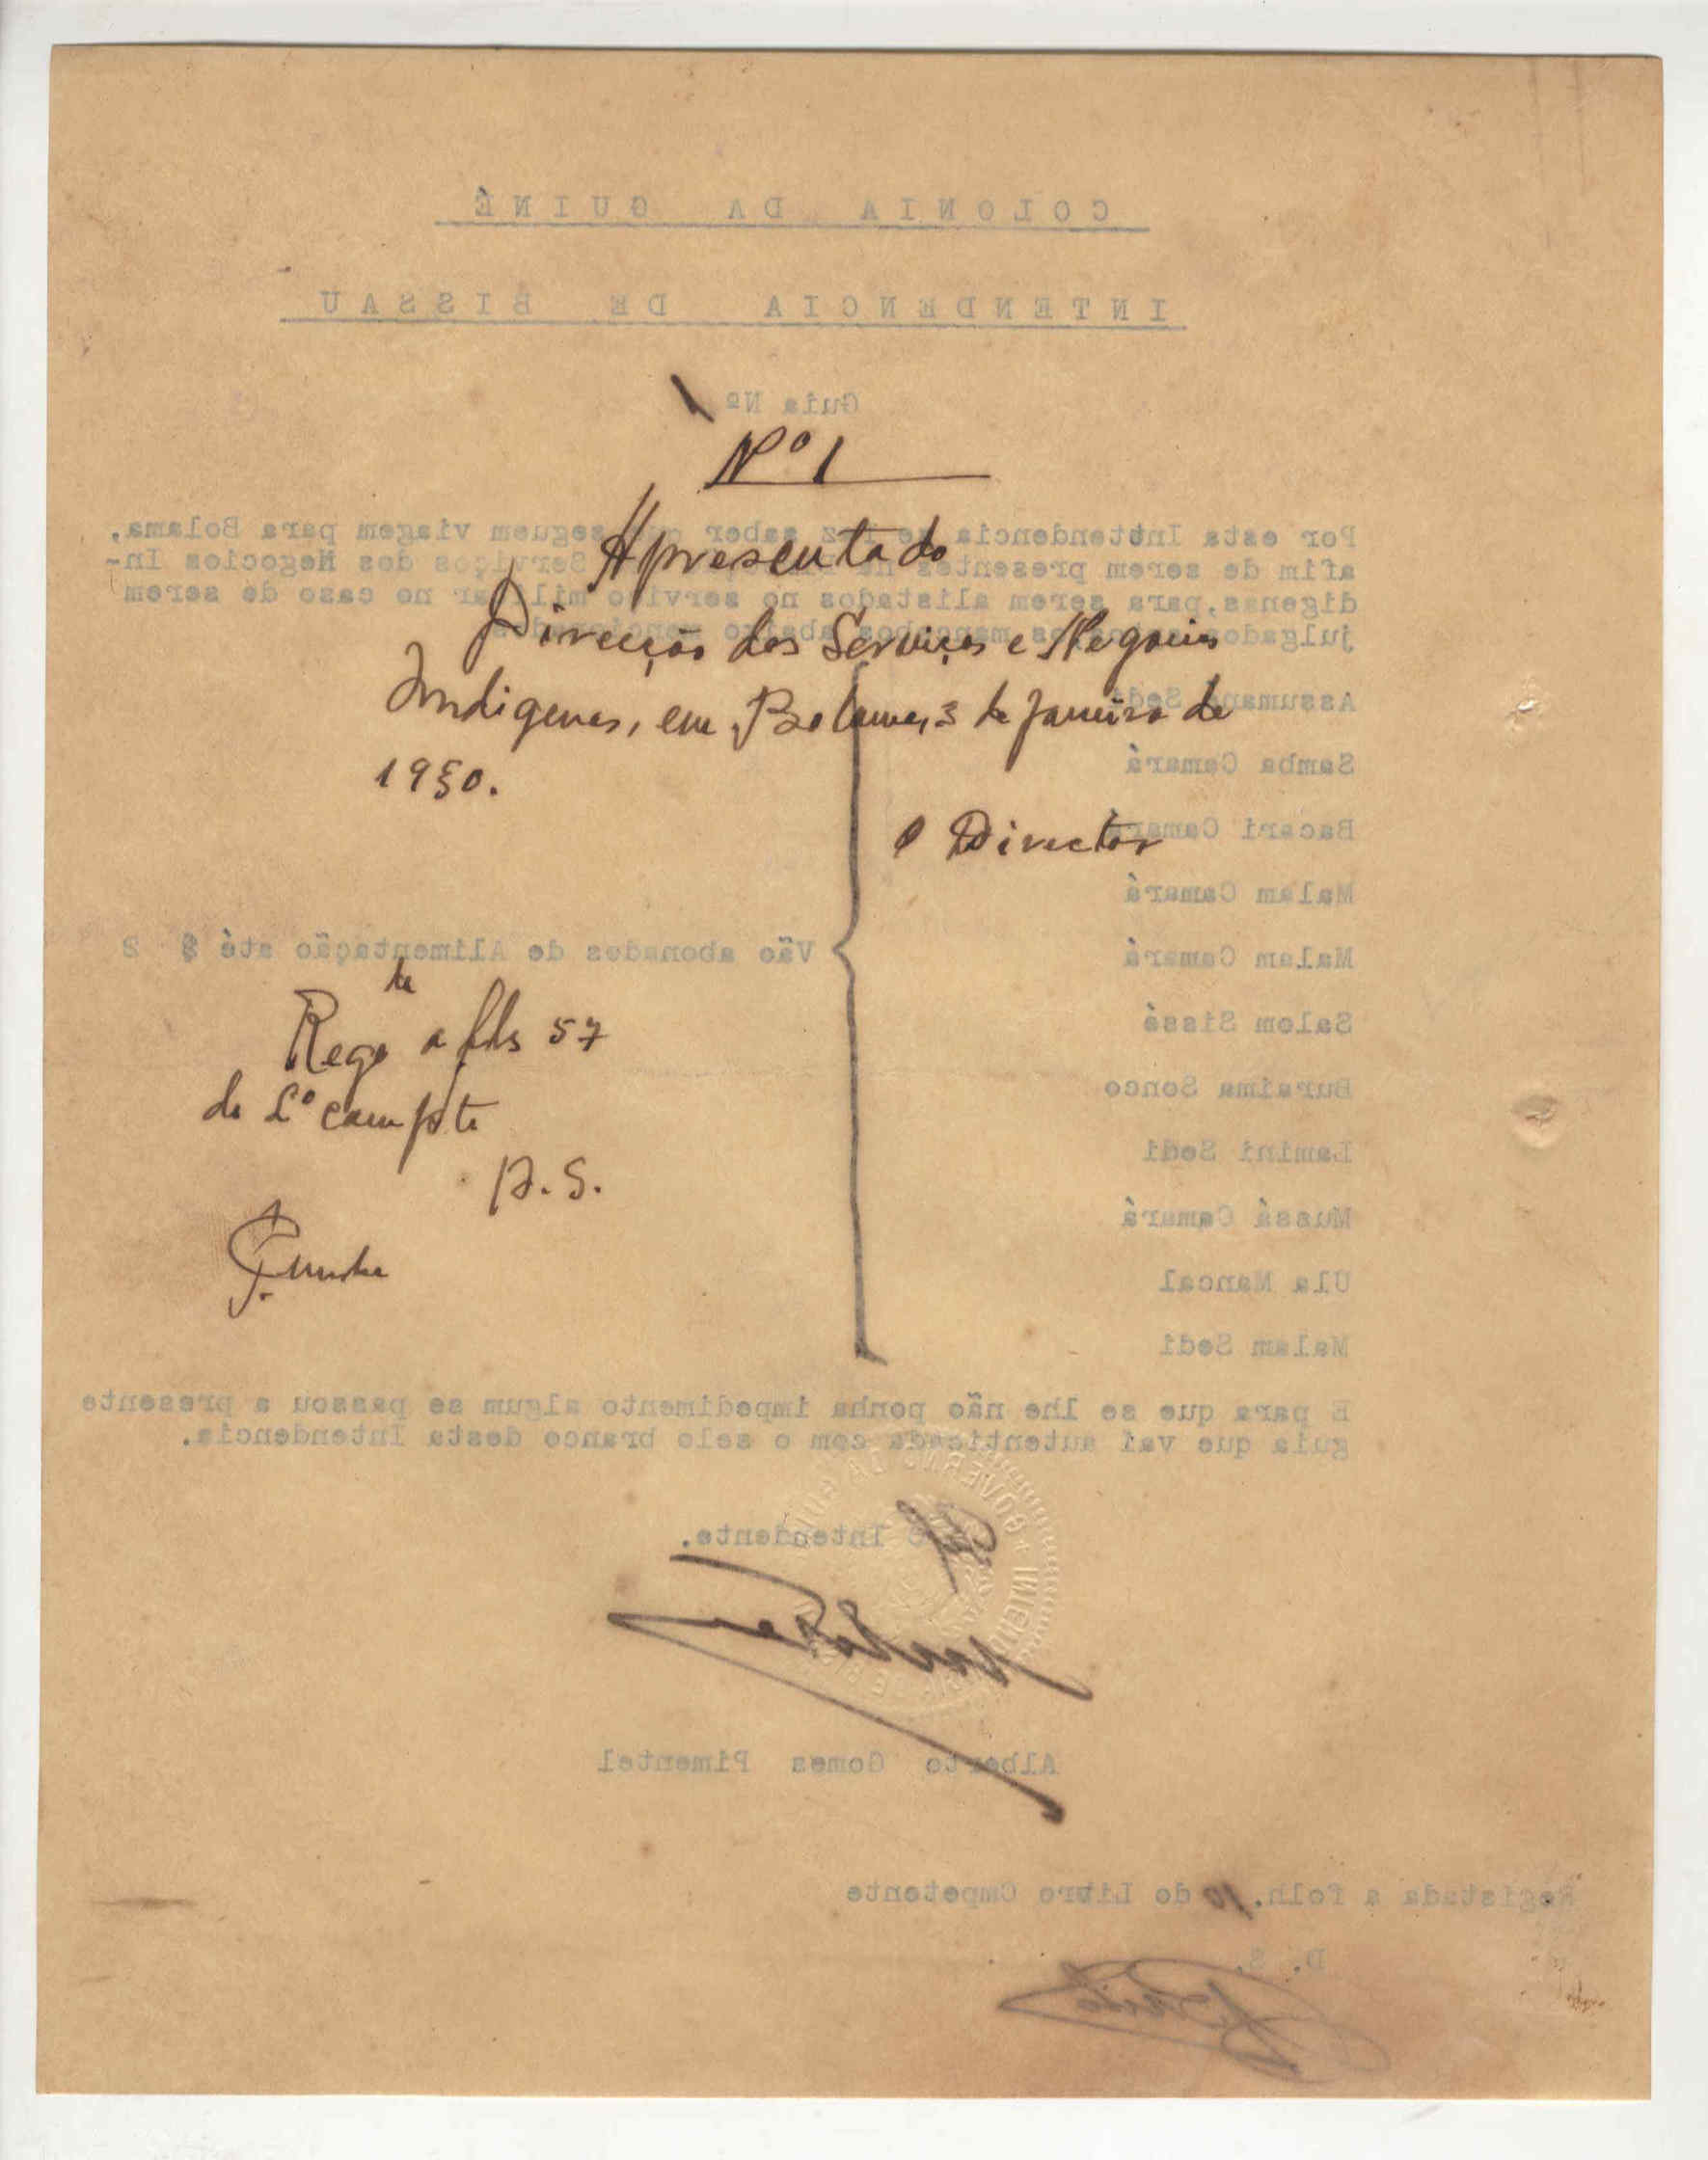 COLONIA DA GUINÉ
INTENDENCIA DE BISSAU
Guia Nº 1
Nº 1
Apresentado
Direcção dos Serviços e Negocios
Indigenas, em Bolama, 3 de Janeiro de
1930.
O Director
Rego a fls 57
do Lº comp te
D. S.
Cunha
Por esta Inttendencia se faz saber que seguem viagem para Bolama,
afim de serem presentes Serviços dos Negocios In-
digenas, para serem alistados no serviço militar no caso de serem
julgados os mancebos abaixo mencionados
Assumane Sedi
Samba Camará
Bacari Camará
Malam Camará
Malam Camará
Salom Sissé
Buraima Sonco
Lamini Sedi
Mussá Camará
Ula Mancal
Malam Sedi
Vão abonados de Alimentação até 2
E para que se lhe não ponha impedimento algum se passou a presente
guia que vai autenticada com o selo branco desta Intendencia.
O Intendente.
Alberto Gomes Pimentel
Registada a folh. 10 do Livro Cmpetente
D. S.